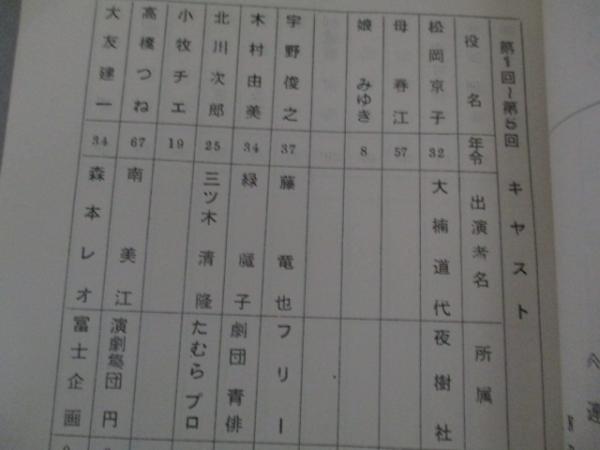 第1回~第5回 キャスト
役名 年令 出演者名 所属
松岡京子 32 大楠道代 夜樹社
母 春江 57
娘 みゆき 8
宇野俊之 37 藤竜也 フリー
木村由美 34 緑魔子 劇団青俳
北川次郎 25 三ツ木清隆 たむらプロ
小牧チエ 19
高橋つね 67 南美江 演劇集団円
大友建一 34 森本レオ 富士企画